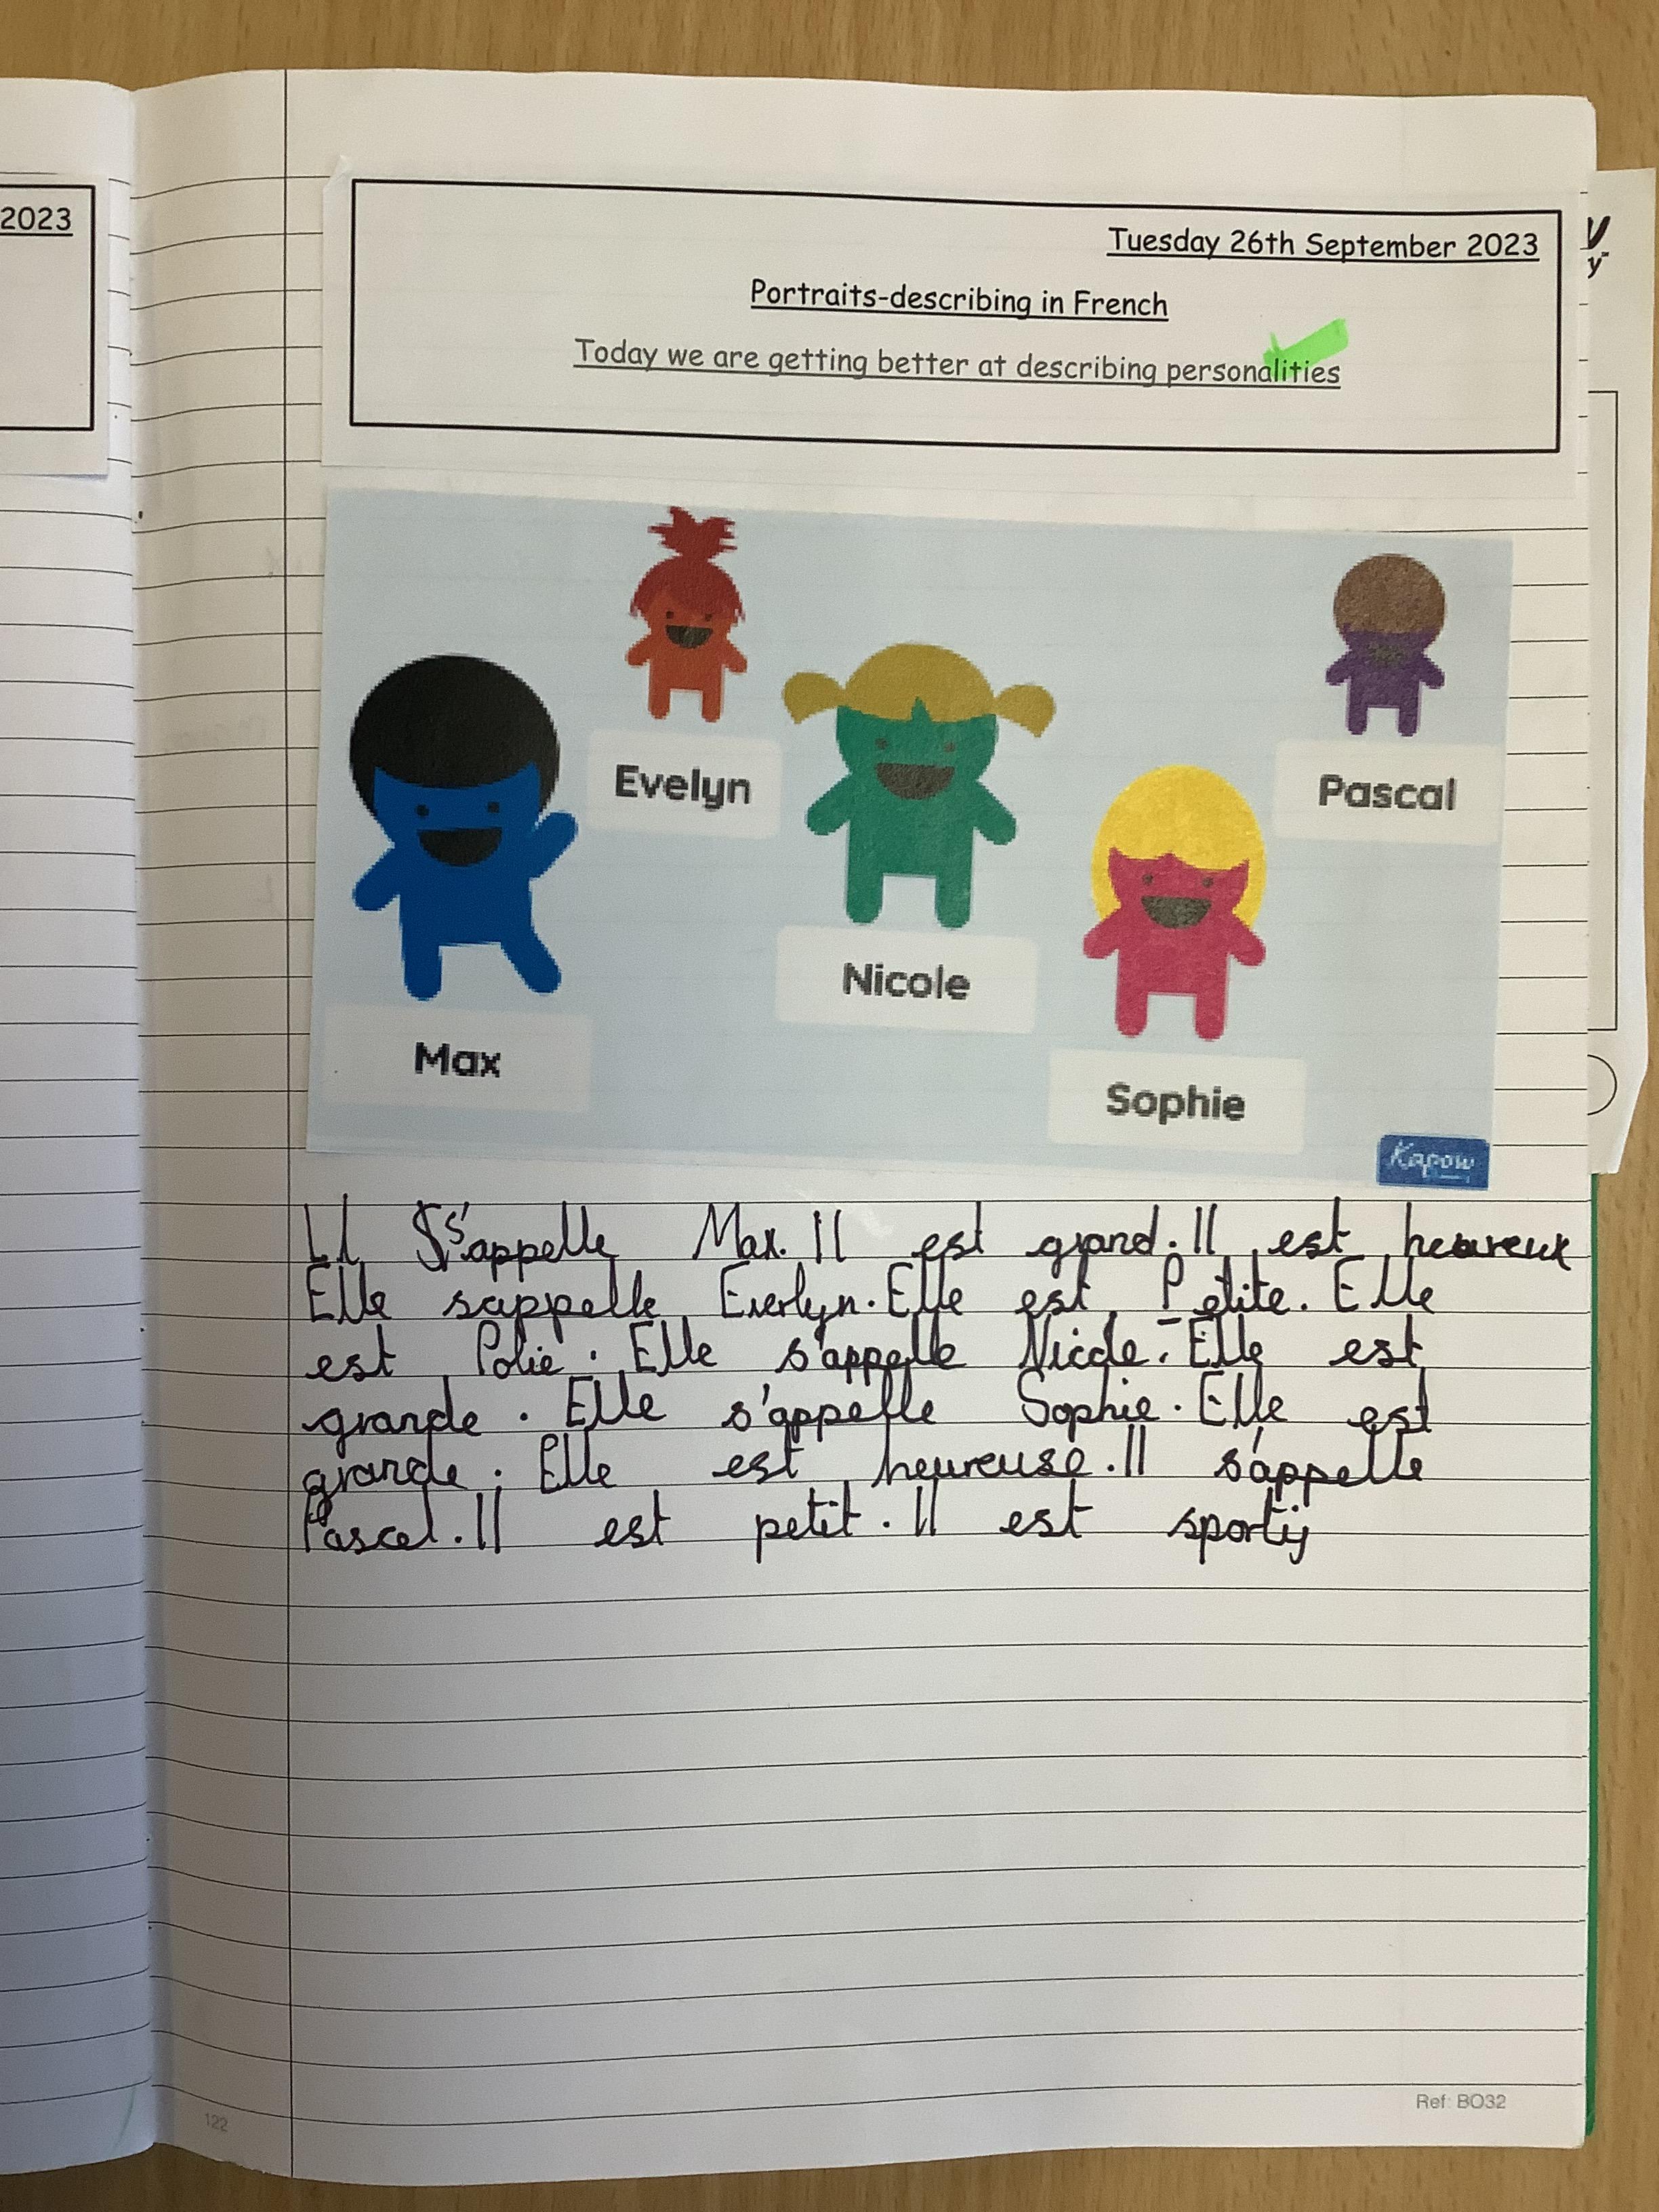 2023
Tuesday 26th September 2023
Portraits-describing in French
Today we are getting better at describing personalities
Evelyn
Pascal
Nicole
Max
Sophie
Kapow
Il s'appelle Max. Il est grand. Il est heureux
Elle sappelle Everlyn. Elle est Petite. Elle
est Polie. Elle s'appelle Nicole. Elle est
grande. Elle s'appelle Sophie. Elle est
grande. Elle est heureuse. Il s'appelle
Pascel. Il est petit. Il est sportif
Ref: BO32
122